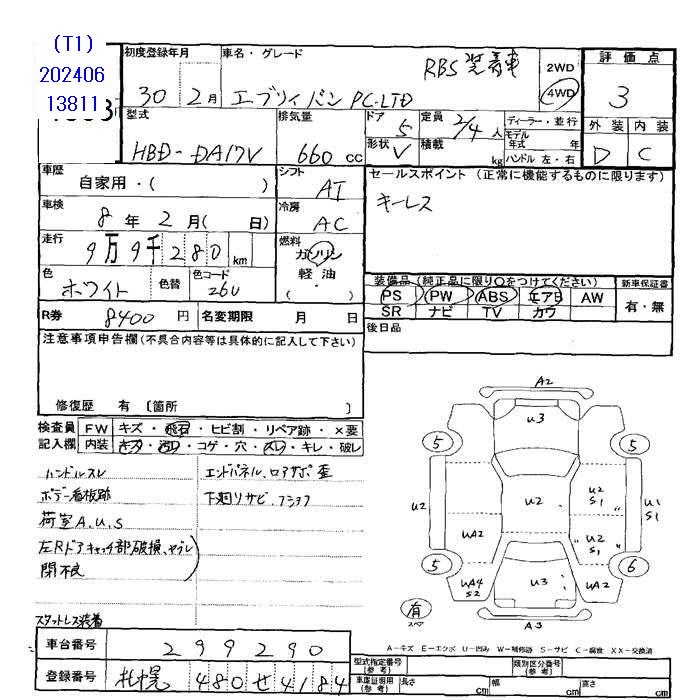 (T1)
202406
13811
初度登録年月
車名・グレード
30
2月
エブリイバン PC-LTD
RBS装着車
2WD
4WD
評価点
3
型式
HBD-DA17V
排気量
660 cc
ドア
5
定員
2/4 人
形状
V
積載
kg
ディーラー・並行
モデル
年式 年
ハンドル 左・右
外装
内装
D
C
車歴
自家用・( )
シフト
AT
セールスポイント (正常に機能するものに限ります)
キーレス
車検
8 年 2 月( 日)
冷房
AC
走行
9万9千280 km
燃料
ガソリン
軽油
・
( )
色
ホワイト
色替
色コード
26U
装備品 (純正品に限り○をつけてください)
新車保証書
PS PW ABS エアB AW
SR ナビ TV カワ
有・無
R券
8400 円
名変期限
月 日
後日品
注意事項申告欄(不具合内容等は具体的に記入して下さい)
修復歴 有 〔箇所 〕
検査員
記入欄
FW キズ・飛石・ヒビ割・リペア跡・×要
内装 キズ・汚レ・コゲ・穴・スレ・キレ・破レ
ハンドルスレ
ボデー看板跡
荷室A.U.S
左Rドアキャッチ部破損、ヤブレ
閉不良
スタットレス装着
エンドパネル、ロアサポ歪
下廻リサビ、
A2
U3
5
5
U2
U2
U2
S1
U1
S1
UA2
U2
S1
5
6
UA4
S2
U3
UA2
有
スペア
A3
A-キズ E-エクボ U-凹み W-補修跡 S-サビ C-腐食 XX-交換済
車台番号
299290
登録番号
札幌 480せ4184
型式指定番号
(参考)
類別区分番号
(参考)
車庫証明用
(参考)
長さ
cm
幅
cm
高さ
cm